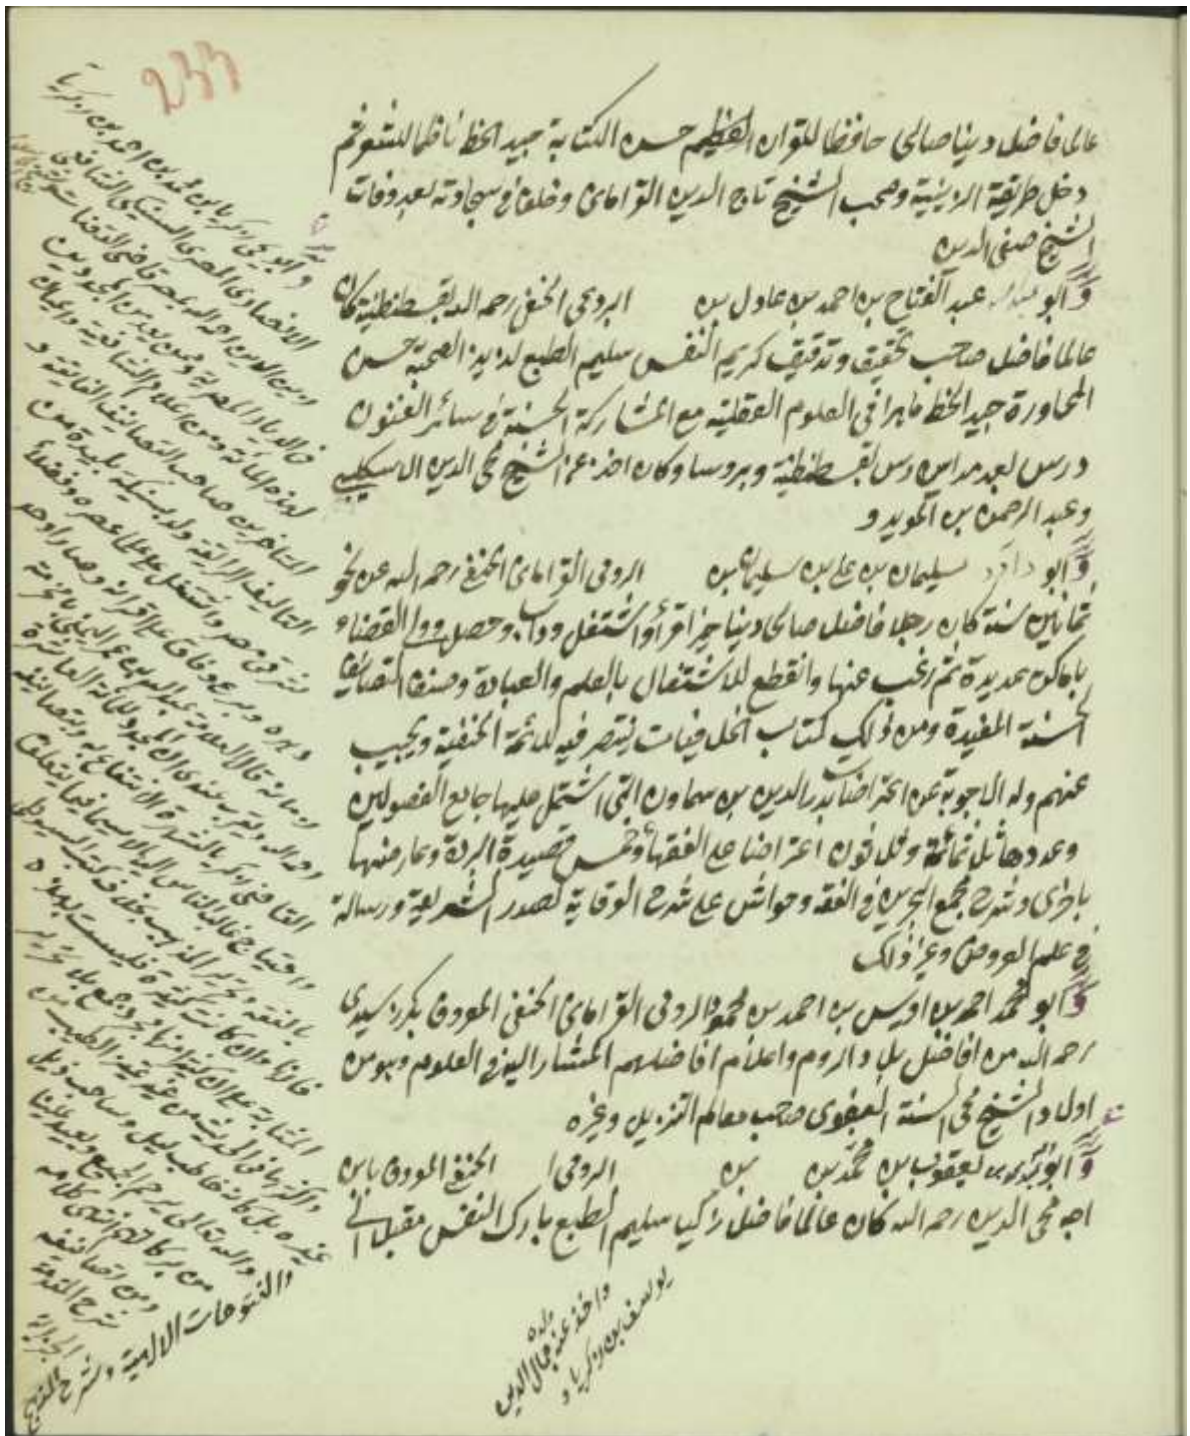 ٢٣٣
عالما فاضلا دينا صالحا حافظا للقران العظيم حسن الكتابة جيد الخط ناظما للشعر ثم
دخل طريقة الزينية وصحب الشيخ تاج الدين القرامانى وخلفه فى سجادته بعد وفات
الشيخ صفى الدين
وابو عبد الفتاح بن احمد بن عادل بن الرومى الحنفى رحمه الله بقسطنطنية كان
عالما فاضلا صاحب تحقيق وتدقيق كريم النفس سليم الطبع لذيذ الصحبة حسن
المحاورة جيد الخط ماهرا فى العلوم العقلية مع المشاركة الحسنة فى سائر الفنون
درس بعد مدارس بقسطنطنية وبروسا وكان اخذ عن الشيخ محى الدين الاسكليبى
وعبد الرحمن بن المويد و
وابو داود سليمان بن على بن سليمان بن الرومى القرامانى الحنفى رحمه الله عن نحو
ثمانين سنة كان رجلا فاضلا صالحا دينا خيرا قرأ واشتغل وداب وحصل وولى القضاء
باماكن عديدة ثم رغب عنها وانقطع للاشتغال بالعلم والعبادة وصنف التصانيف
الحسنة المفيدة ومن ذلك كتاب الخلافيات ينتصر فيه للائمة الحنفية ويجيب
عنهم وله الاجوبة عن اعتراضات بدر الدين بن سماونه التى اشتمل عليها جامع الفصولين
وعددها ثلاثمائة وثلاثون اعتراضا على الفقهاء وخمس قصيدة البردة وعارضها
باخرى وشرح مجمع البحرين فى الفقه وحواش على شرح الوقاية لصدر الشريعة ورسالة
فى علم العروض وغير ذلك
وابو محمد احمد بن اويس بن احمد بن محمود الرومى القرامانى الحنفى المعروف بكرز سيدى
رحمه الله من افاضل بلاد الروم واعلام افاضلهم المشار اليه فى العلوم وهو من
اولاد الشيخ محى السنة البغوى صاحب معالم التنزيل وغيره
وابو يعقوب بن محمد بن بن الرومى الحنفى المعروف باين
اجه محى الدين رحمه الله كان عالما فاضلا زكيا سليم الطبع بارك النفس مقبلا الى
واخذ عنه ولده جمال الدين
يوسف بن زكريا و
وابو يحيى زكريا بن محمد بن احمد بن زكريا
الانصارى المصرى السنيكى الشافعى
زين الدين رحمه الله بمصر قاضى القضاة
فى الديار المصرية وممن يعد من المجددين
لهذه المائة ومن اعلام الشافعية واعيان
المتأخرين صاحب التصانيف الفايقة و
التآليف الرايقة ولد بسنيكة بليدة من
شرقى مصر واشتغل على علماء عصره وفضلاء
دهره وبرع وفاق على اقرانه وصار اوحد
زمانه قال العلامة عبد الله بن عمر
رحمه الله ويقرب عندى انه المجدد للمائة العاشرة
القاضى زكريا لشهرة الانتفاع به وبتصانيفه
واحتياج غالب الناس اليها لا سيما فيما يتعلق
بالفقه وتحرير المذهب بخلاف كتب السيوطى
فانها وان كانت كثيرة فليست بهذه
المثابة على ان كثيرا منها مجرد جمع بلا تحرير
واكثرها فى الحديث من غير تمييز الطيب من
غيره بل كانه حاطب ليل وساحب ذيل
والله تعالى يرحم الجميع ويعيد علينا
من بركاتهم انتهى كلامه
ومن تصانيفه
شرح المقدمة
الجزرية
والفتوحات الالهية وشرح المنهج